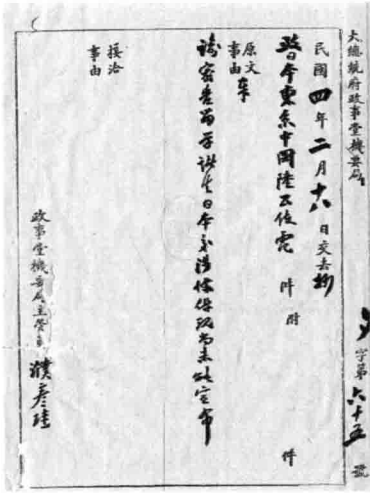 大總統府政事堂機要局
字第六十五號
民國四年二月十六日交去抄
致日本東京中國陸公使電 件附 件
原文事由
密告留学諸生日本交涉條件現尚未能宣布
接洽事由
政事堂機要局主管員 濮彦珪